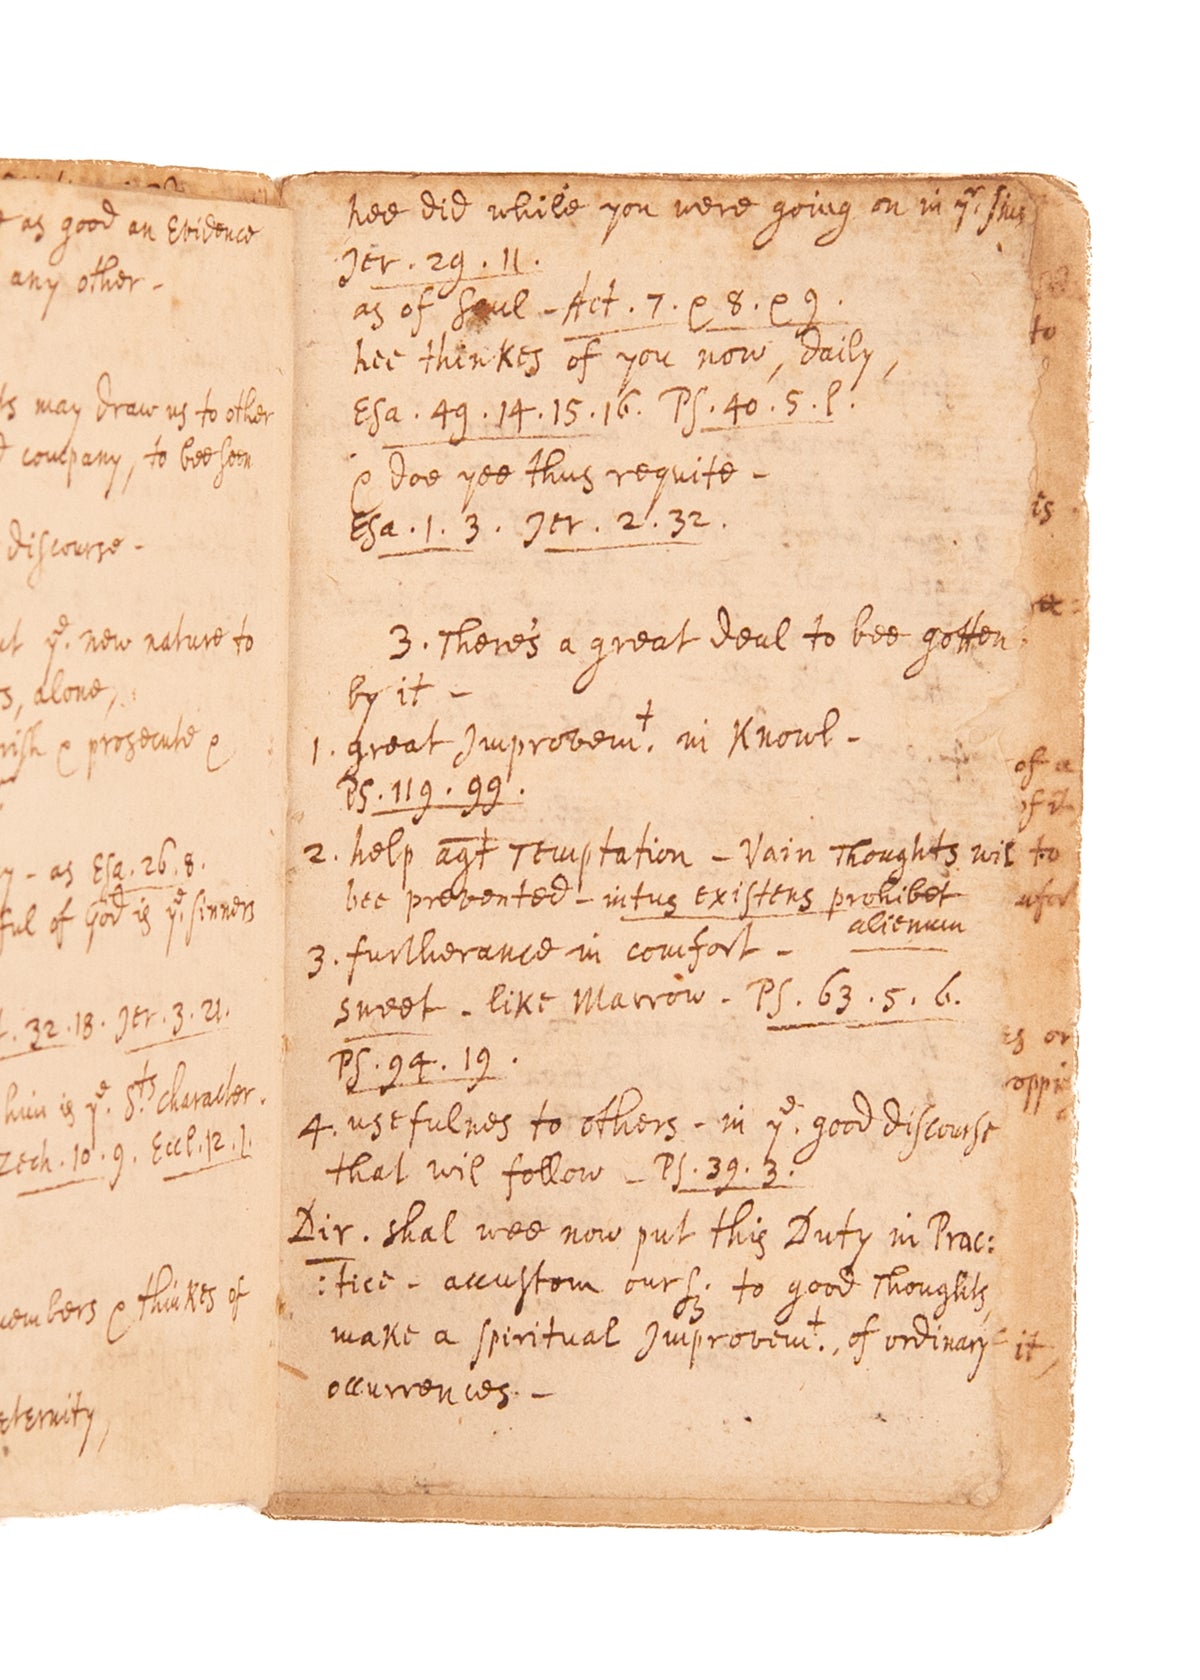 as good an Evidence
any other -
may draw us to other
company, to bee seen
discourse -
yᵉ. new nature to
alone,
& prosecute &
- as Esa. 26. 8.
of God is yᵉ sinners
32. 18. Jer. 3. 21.
him is yᵉ. Sᵗˢ character.
Zech. 10. 9. Eccl. 12. 1.
& thinkes of
eternity,
hee did while you were going on in yʳ. sins
Jer. 29. 11.
as of Saul - Act. 7. & 8. & 9.
hee thinkes of you now, daily,
Esa. 49. 14. 15. 16. Ps. 40. 5. l.
& doe yee thus requite -
Esa. 1. 3. Jer. 2. 32.
3. There's a great deal to bee gotten
by it -
1. great Improvemᵗ. in Knowl -
Ps. 119. 99.
2. help agt Temptation - Vain Thoughts wil
bee prevented - intus existens prohibet
alienum
3. furtherance in comfort -
sweet - like Marrow - Ps. 63. 5. 6.
Ps. 94. 19.
4. usefulnes to others - in yᵉ. good discourse
that wil follow - Ps. 39. 3.
Dir. shal wee now put this Duty in Prac:
:tice - accustom our s. to good Thoughts,
make a spiritual Improvemᵗ., of ordinary
occurrences. -
to
is
of a
to
or
it,